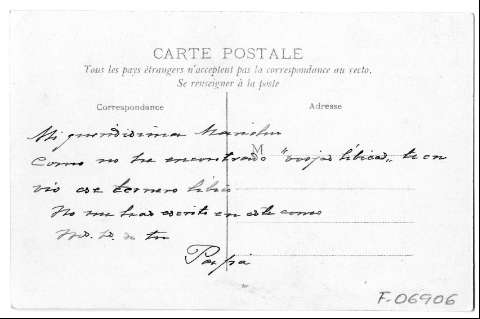 CARTE POSTALE
Tous les pays étrangers n'acceptent pas la correspondance au recto.
Se renseigner à la poste
Correspondance
Adresse
M
Mi queridísima
Como no he encontrado "ovejas líbicas" te en
vio ese ternero líbio
No me has escrito en este correo
de tu
Papá
F-06906